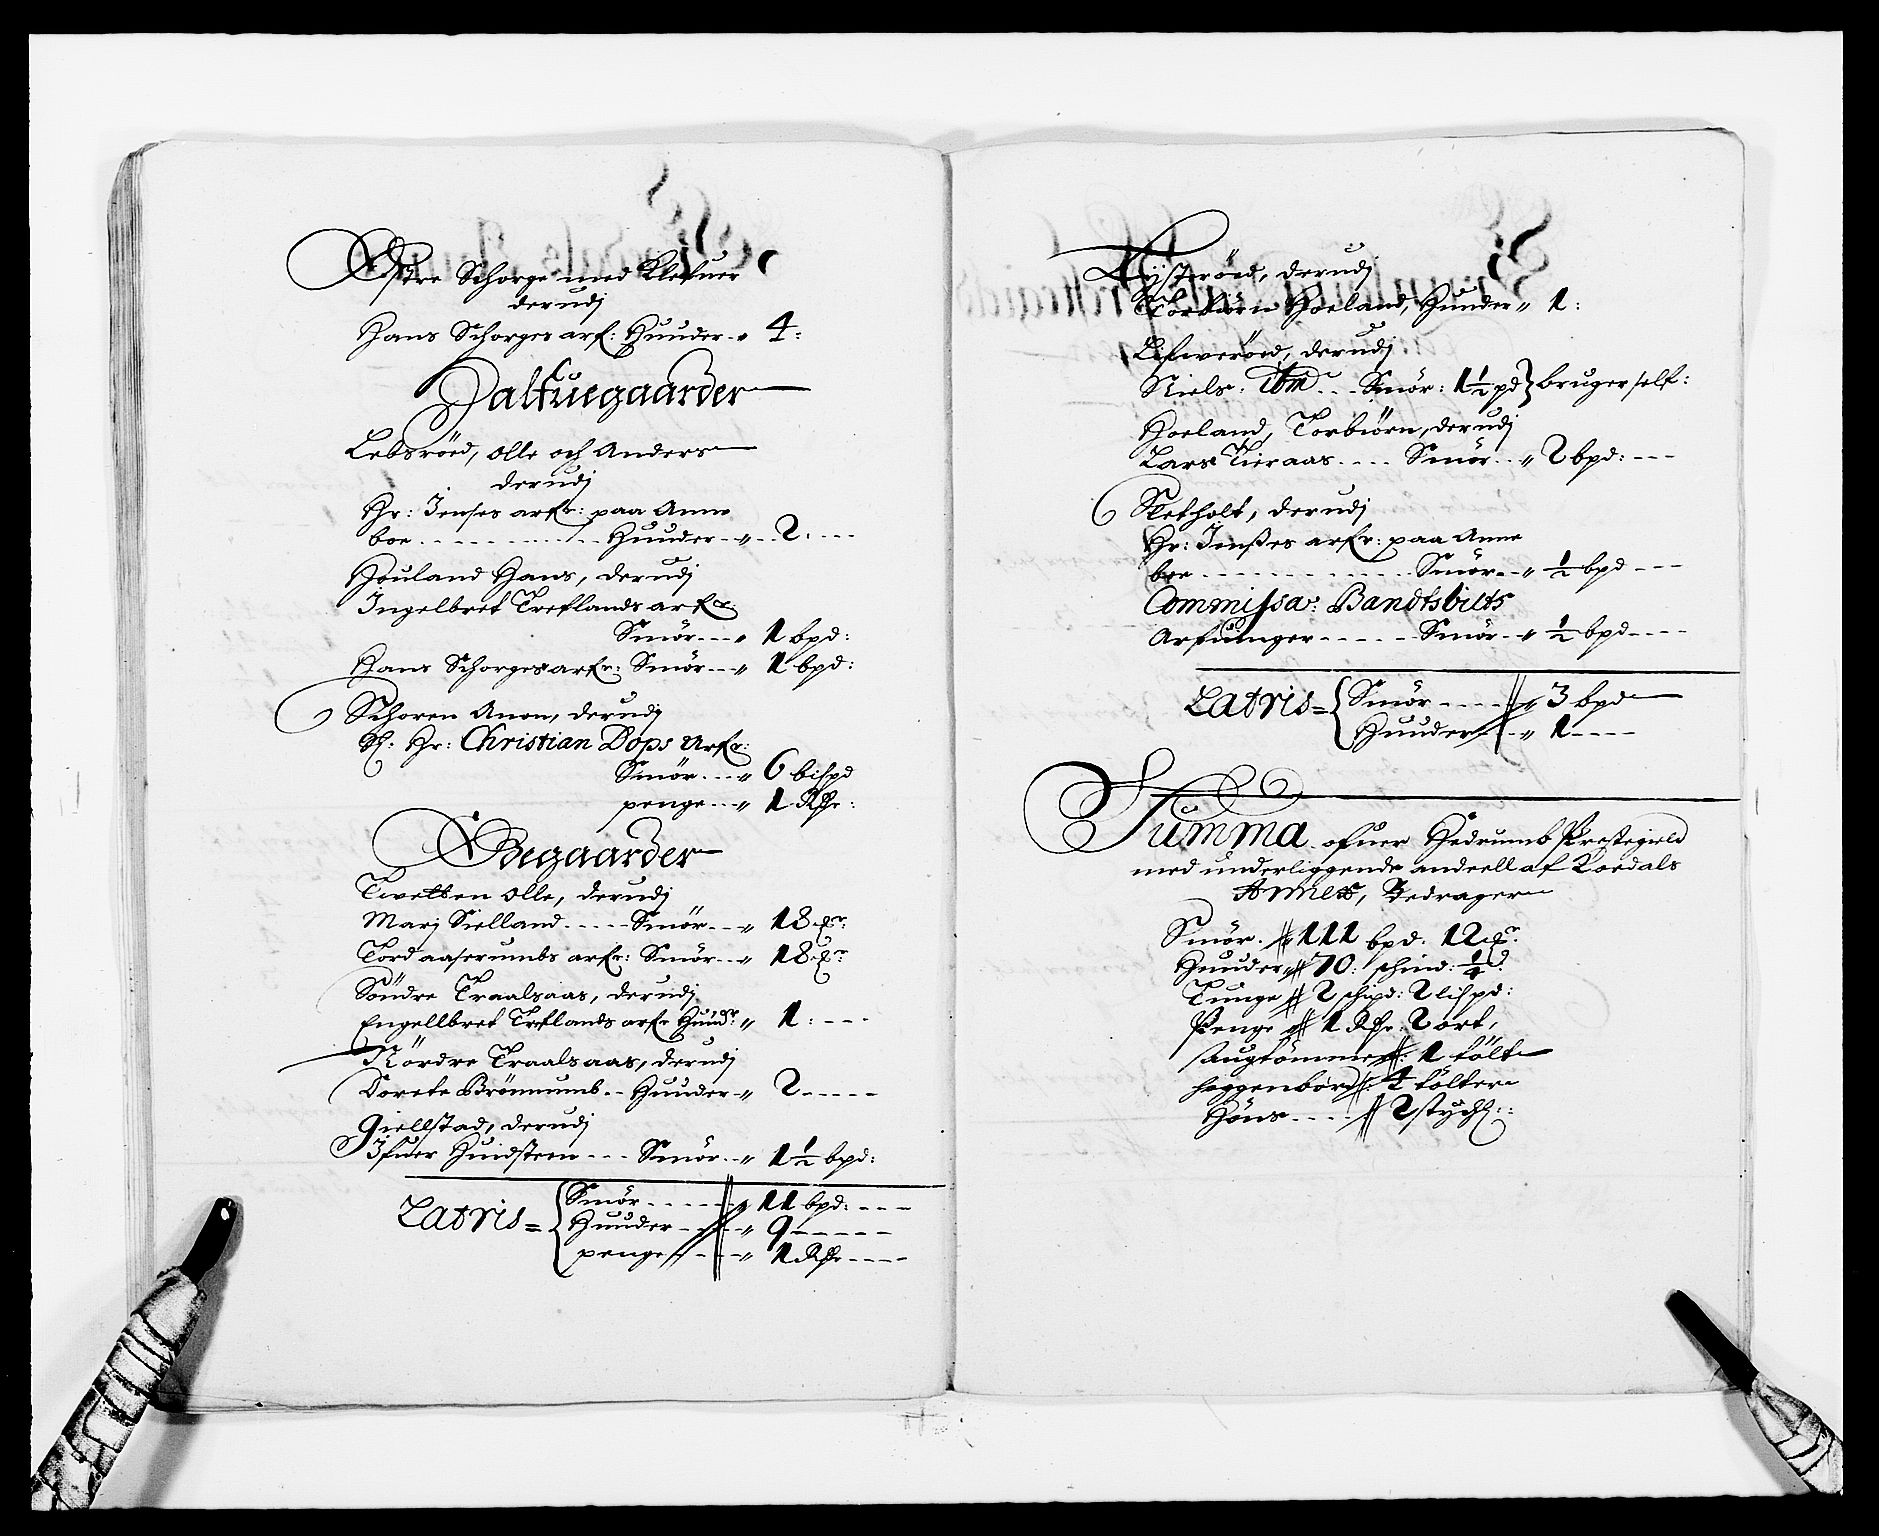 Østre Schorge med Klefuer
derudj
Hans Schorges arf: Huuder „ 4:
Halfuegaarder
Lebsröed, olle och Anders
derudj
Hr: Jenses arfr: paa Anne
boe Huuder „ 2:
Houland Hans, derudj
Ingelbret Treflands arfr
Smör „ 1 bpd:
Hans Schorges arfr: Smör „ 1 bpd:
Schoren Anon, derudj
Sl. Hr: Christian Dops Arfr:
Smör „ 6 bispd
penge „ 1 Rdr:
Ødegaarder
Tvetten olle, derudj
Marj Sielland Smör „ 18 mr:
Tord aaserumbs arfr: Smör „ 18 mr:
Söndre Traalsaas, derudj
Engellbret Treflands arfr Huudr: „ 1:
Nördre Traalsaas, derudj
Dorete Brönnumb Huuder „ 2
Giellstad, derudj
Ifuer Huidsteen Smör „ 1½ bpd:
Latris = Smör „ 11 bpd:
Huuder „ 9
penge „ 1 Rdr
Nysteröed, derudj
Torbiörn Hoeland, Huuder „ 1:
Lifweröed, derudj
Niels: ibm Smör: 1½ pd bruger self:
Hoeland, Torbiörn, derudj
Lars Tieraas Smör „ 2 bpd:
Sletholt, derudj
Hr: Jenßes arfr: paa Anne
boe Smör „ ½ bpd
Commissa: Bandtsbilts
Arfuinger Smör „ ½ bpd
Latris = Smör „ 3 bpd
Huuder „ 1
Summa ofuer Hedrumb Prestegield
med underliggende andeell af Loedals
Annex, Bedrager
Smör 111 bpd: 12 mr:
Huuder 70: schind: ¼ d:
Tunge 2 schipd: 2 lispd:
Penge 1 Rdr: 2 ort,
saugtömmer: 1 tölt
heggenbord ½ tölter
Höns 2 stychr: